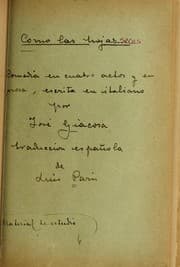 Como las hojas secas
Comedia en cuatro actos y en
prosa, escrita en italiano
por
José Giacosa
traduccion española
de
Luis París
Material de estudio